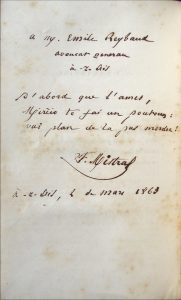 a M. Emile Reybaud
avoucat generau
à-z-Ais
D'abord que l'ames,
Mirèio te fai un poutoun:
vai plan de la pas mordre!
F. Mistral
à-z-Ais, 2 de mars 1863